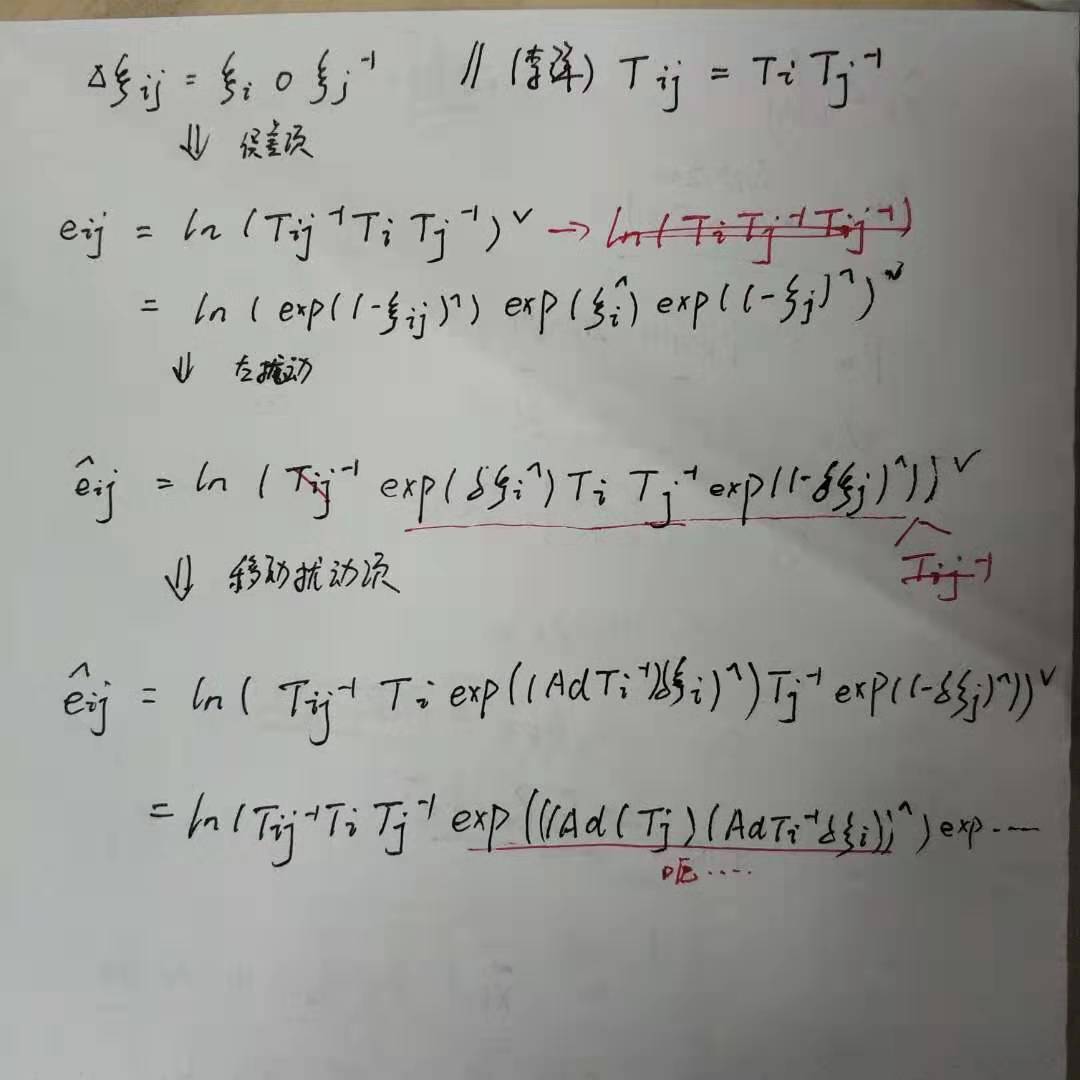 Δξij = ξi ∘ ξj⁻¹ // (李群) Tij = Ti Tj⁻¹
⇓ 误差项
eij = ln (Tij⁻¹ Ti Tj⁻¹)ᵛ → ln (Ti Tj⁻¹ Tij⁻¹)
= ln (exp((-ξij)^) exp(ξi^) exp((-ξj)^)ᵛ
⇓ 左扰动
êij = ln (Tij⁻¹ exp(δξi^) Ti Tj⁻¹ exp((-δξj)^))ᵛ
Tij⁻¹
⇓ 移动扰动项
êij = ln ( Tij⁻¹ Ti exp((AdTi⁻¹)δξi)^) Tj⁻¹ exp((-δξj)^))ᵛ
= ln (Tij⁻¹ Ti Tj⁻¹ exp(((Ad(Tj)(AdTi⁻¹δξi))^) exp ....
呃....